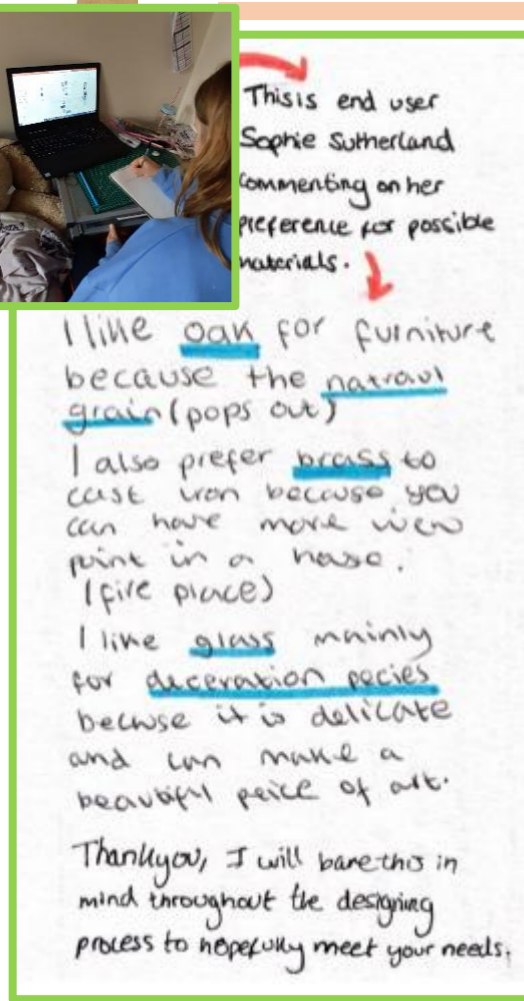 This is end user
Sophie Sutherland
commenting on her
preference for possible
materials.
I like oak for furniture
because the natraul
grain (pops out)
I also prefer brass to
cast iron because you
can have more view
point in a house.
(fire place)
I like glass mainly
for deceration pecies
becuse it is delicate
and can make a
beautiful peice of art.
Thankyou, I will bare this in
mind throughout the designing
process to hopefully meet your needs.